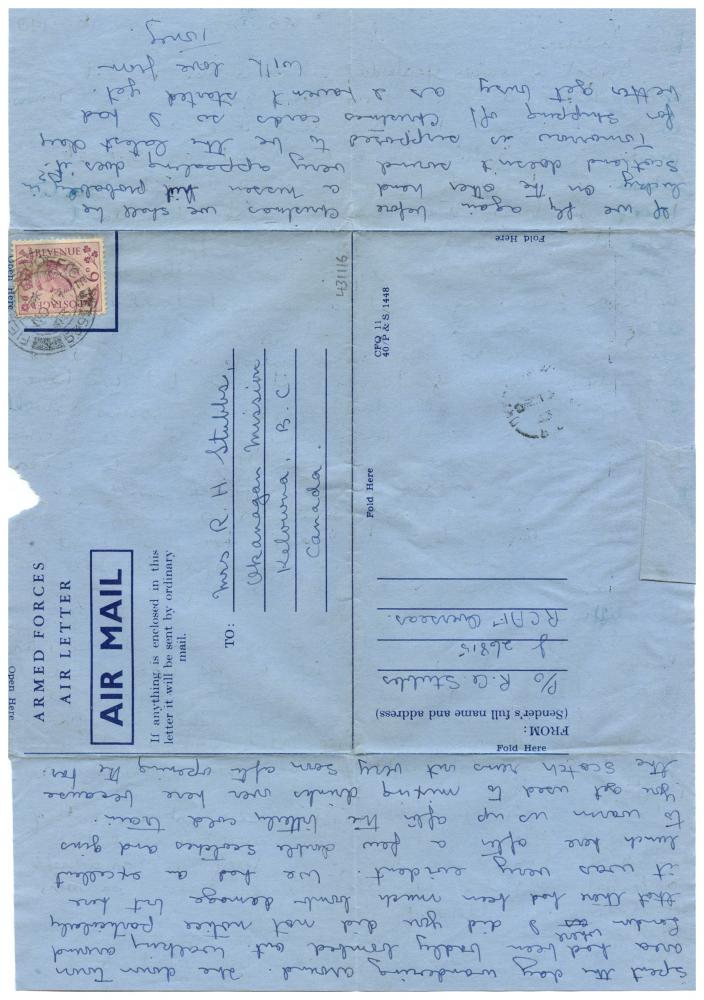 spent the day wandering around. The down Town
area had been badly bombed but walking around
London where as I did you did not notice particularly
that there had been much bomb damage but here
it was very evident. We had an excellent
lunch here after a few double scotches and gins
to warm us up after the bitterly cold train.
You get used to mixing drinks over here because
the Scotch runs out very soon after opening the bar.
If we fly again before Christmas we shall be
lucky. On the other hand a nissen hut probably in
Scotland doesn't sound very appealing does it?
Tomorrow is supposed to be the latest day
for shipping off Christmas cards so I had
better get busy as I haven't started yet.
With love from
Toney.
Open Here
ARMED FORCES
AIR LETTER
AIR MAIL
If anything is enclosed in this
letter it will be sent by ordinary
mail.
TO:
Mrs R. H. Stubbs,
Okanagan Mission
Kelowna, B.C.
Canada.
Open Here
POSTAGE
REVENUE
6D
431116
Fold Here
FROM:
(Sender's full name and address)
P/O R. C. Stubbs
J 26815
RCAF Overseas.
Fold Here
CFQ 11
40/P & S/1448
Fold Here